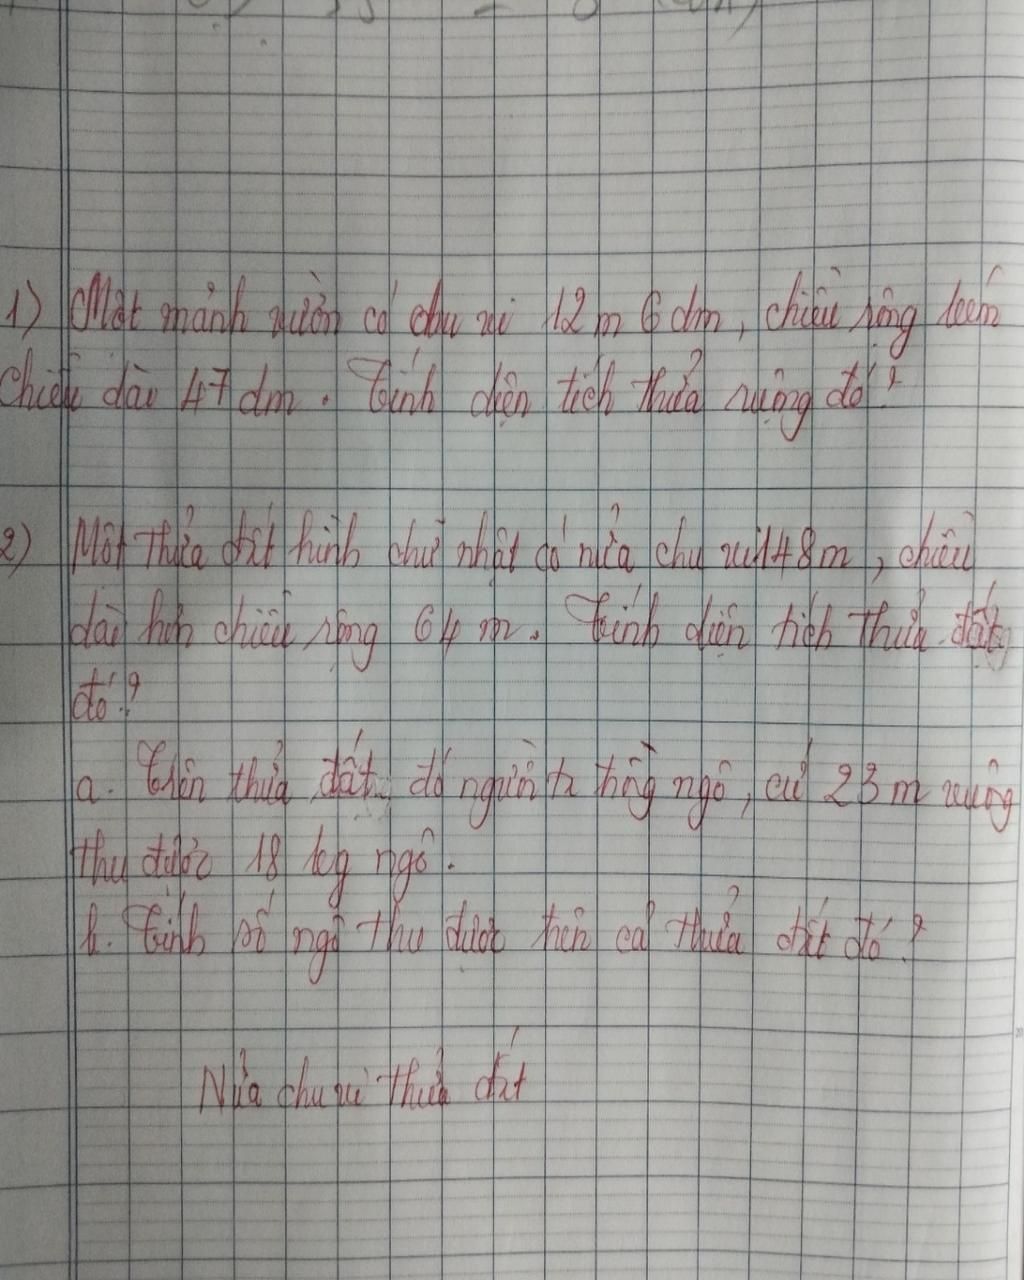 1) Một mảnh vườn có chu vi 12 m 6 dm, chiều rộng kém
chiều dài 47 dm. Tính diện tích thửa ruộng đó?
2) Một thửa đất hình chữ nhật có nửa chu vi 148 m, chiều
dài hơn chiều rộng 64 m. Tính diện tích thửa đất
đó?
a. Trên thửa đất đó người ta trồng ngô, cứ 23 m vuông
thu được 18 kg ngô.
b. Tính số ngô thu được trên cả thửa đất đó?
Nửa chu vi thửa đất